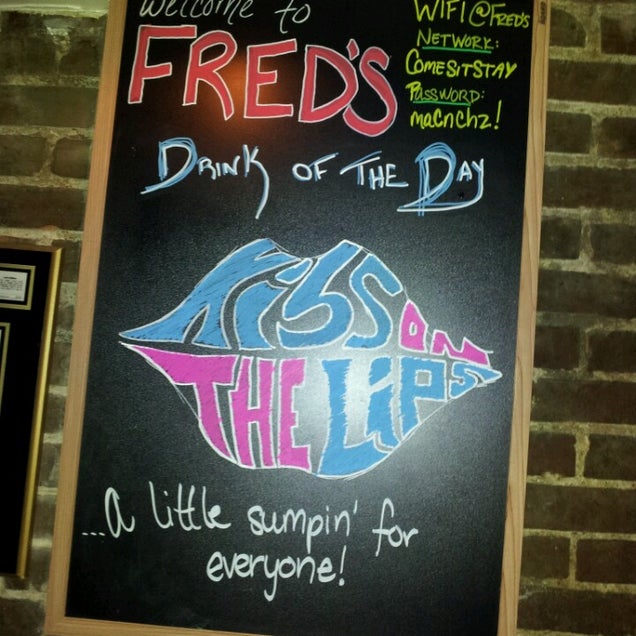 Welcome to
FRED'S
WIFI@FRED'S
NETWORK:
COMESITSTAY
PASSWORD:
macnchz!
DRINK OF THE DAY
KISS ON
THE LIPS
...a little sumpin' for
everyone!